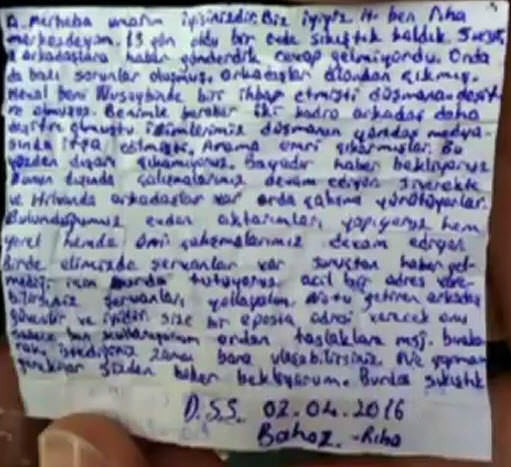 A. Merheba umarım iyisinizdir. Biz iyiyiz. H. ben Riha
merkezdeyim. 13 gün oldu bir evde sıkıştık kaldık. Suruç
arkadaşlara haber gönderdik cevap gelmiyordu. Onda
da bazı sorunlar oluşmuş. Arkadaşlar alandan çıkmış.
beni Nusaybinde biri ihbar etmişti düşmana. deşif
re olmuşuz. Benimle beraber iki kadro arkadaş daha
deşifre olmuştu isimlerimiz düşmanın yandaş medya-
sında ifşa edilmişti. Arama emri çıkarmışlar. Bu
yüzden dışarı çıkamıyoruz. Bayadır haber bekliyoruz
Bunun dışında çalışmalarımız devam ediyor. Siverekte
ve Hilvanda arkadaşlar var orda çalışma yürütüyorlar.
Bulunduğumuz evden aktarımları yapıyoruz hem
yerel hemde çalışmalarımız devam ediyor
Birde elimizde şervanlar var suruçtan haber gel-
mediği için burda tutuyoruz acil bir adres vere-
bilirseniz şervanları yollayalım notu getiren arkadaş
güvenilir ve iyidir. size bir eposta adresi verecek onu
sadece ben kullanıyorum ordan taslaklara msj. bırakır
istediğiniz zaman bana ulaşabilirsiniz. Ne yapmam
gerekiyor sizden haber bekliyorum. Burda sıkıştık
D.S.S. 02.04.2016
Bahoz.-Riha